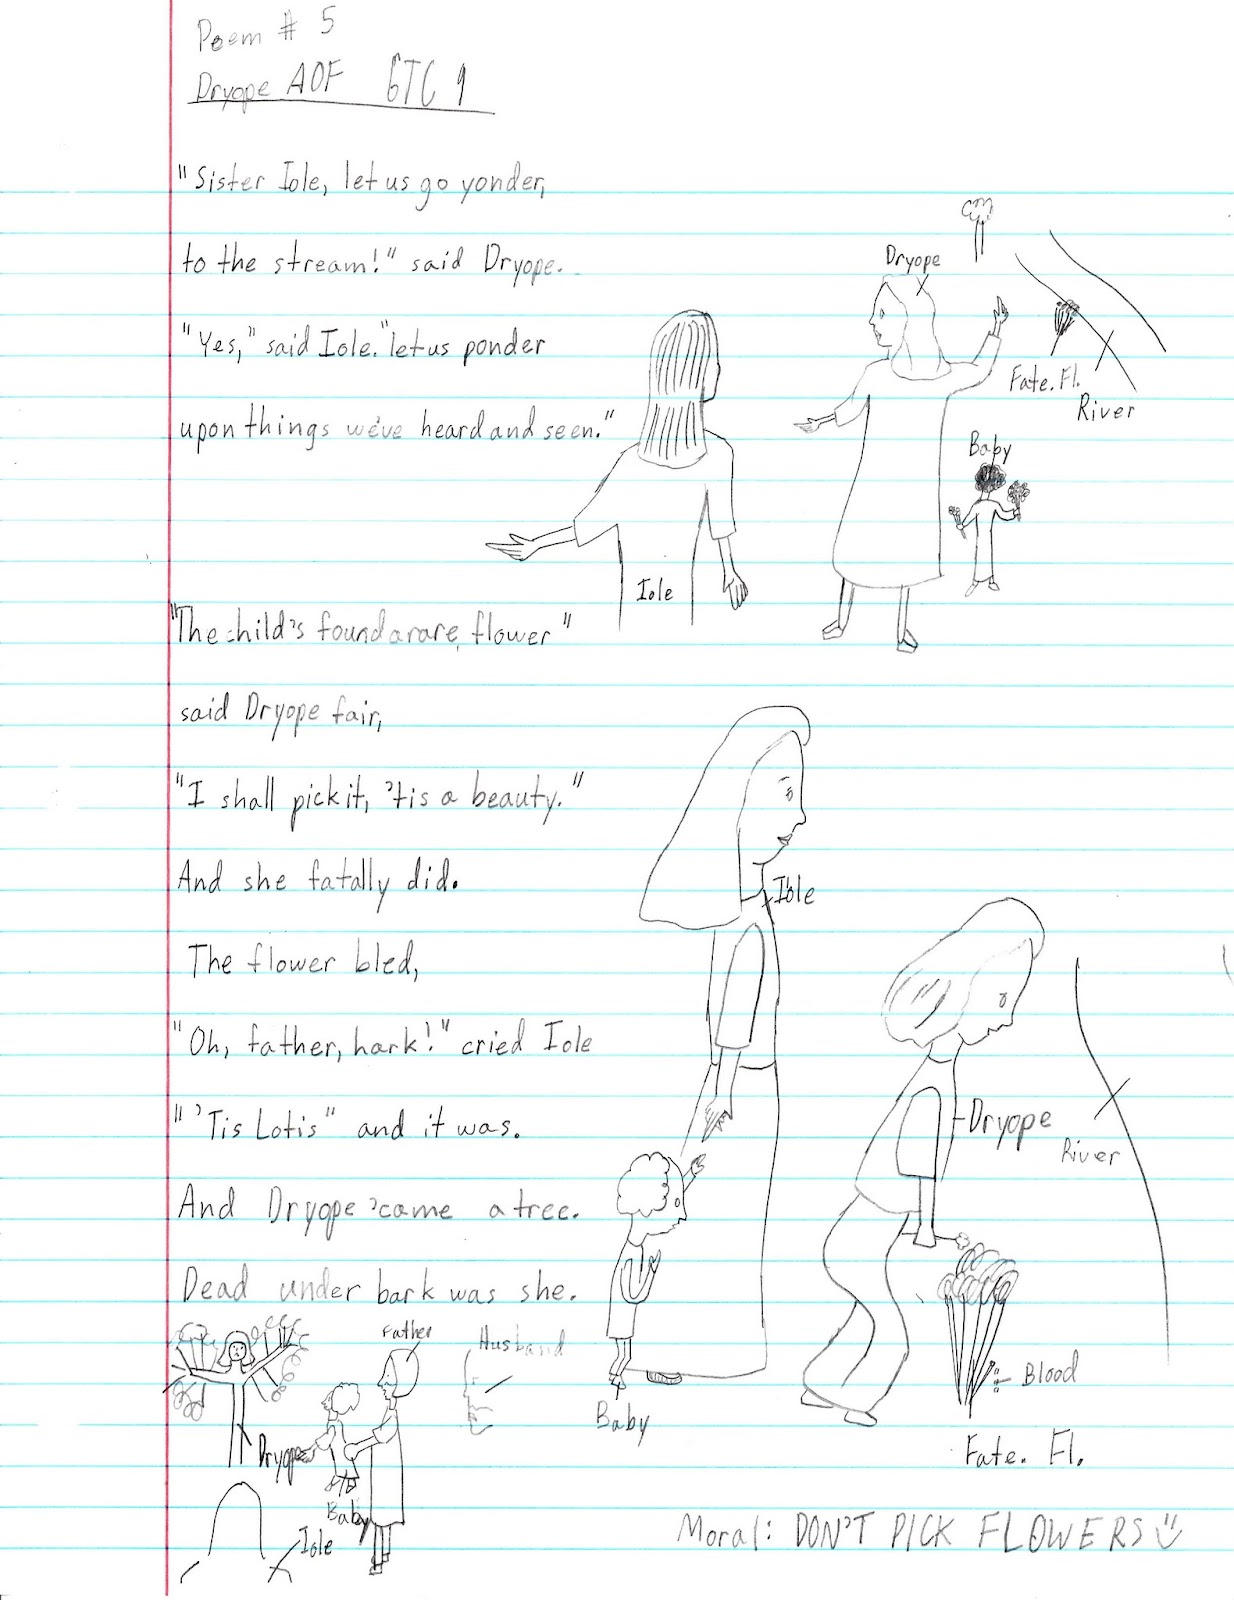 Poem # 5
Dryope AOF GTC 1
"Sister Iole, let us go yonder,
to the stream!" said Dryope.
"Yes," said Iole. "let us ponder
upon things we've heard and seen."
Dryope
Fate. Fl.
River
Baby
Iole
"The child's found a rare flower"
said Dryope fair,
"I shall pick it, 'tis a beauty."
And she fatally did.
Iole
The flower bled,
"Oh, father, hark!" cried Iole
"'Tis Lotis" and it was.
Dryope
River
And Dryope 'came a tree.
Dead under bark was she.
Father
Husband
Blood
Baby
Dryope
Fate. Fl.
Baby
Iole
Moral: DON'T PICK FLOWERS